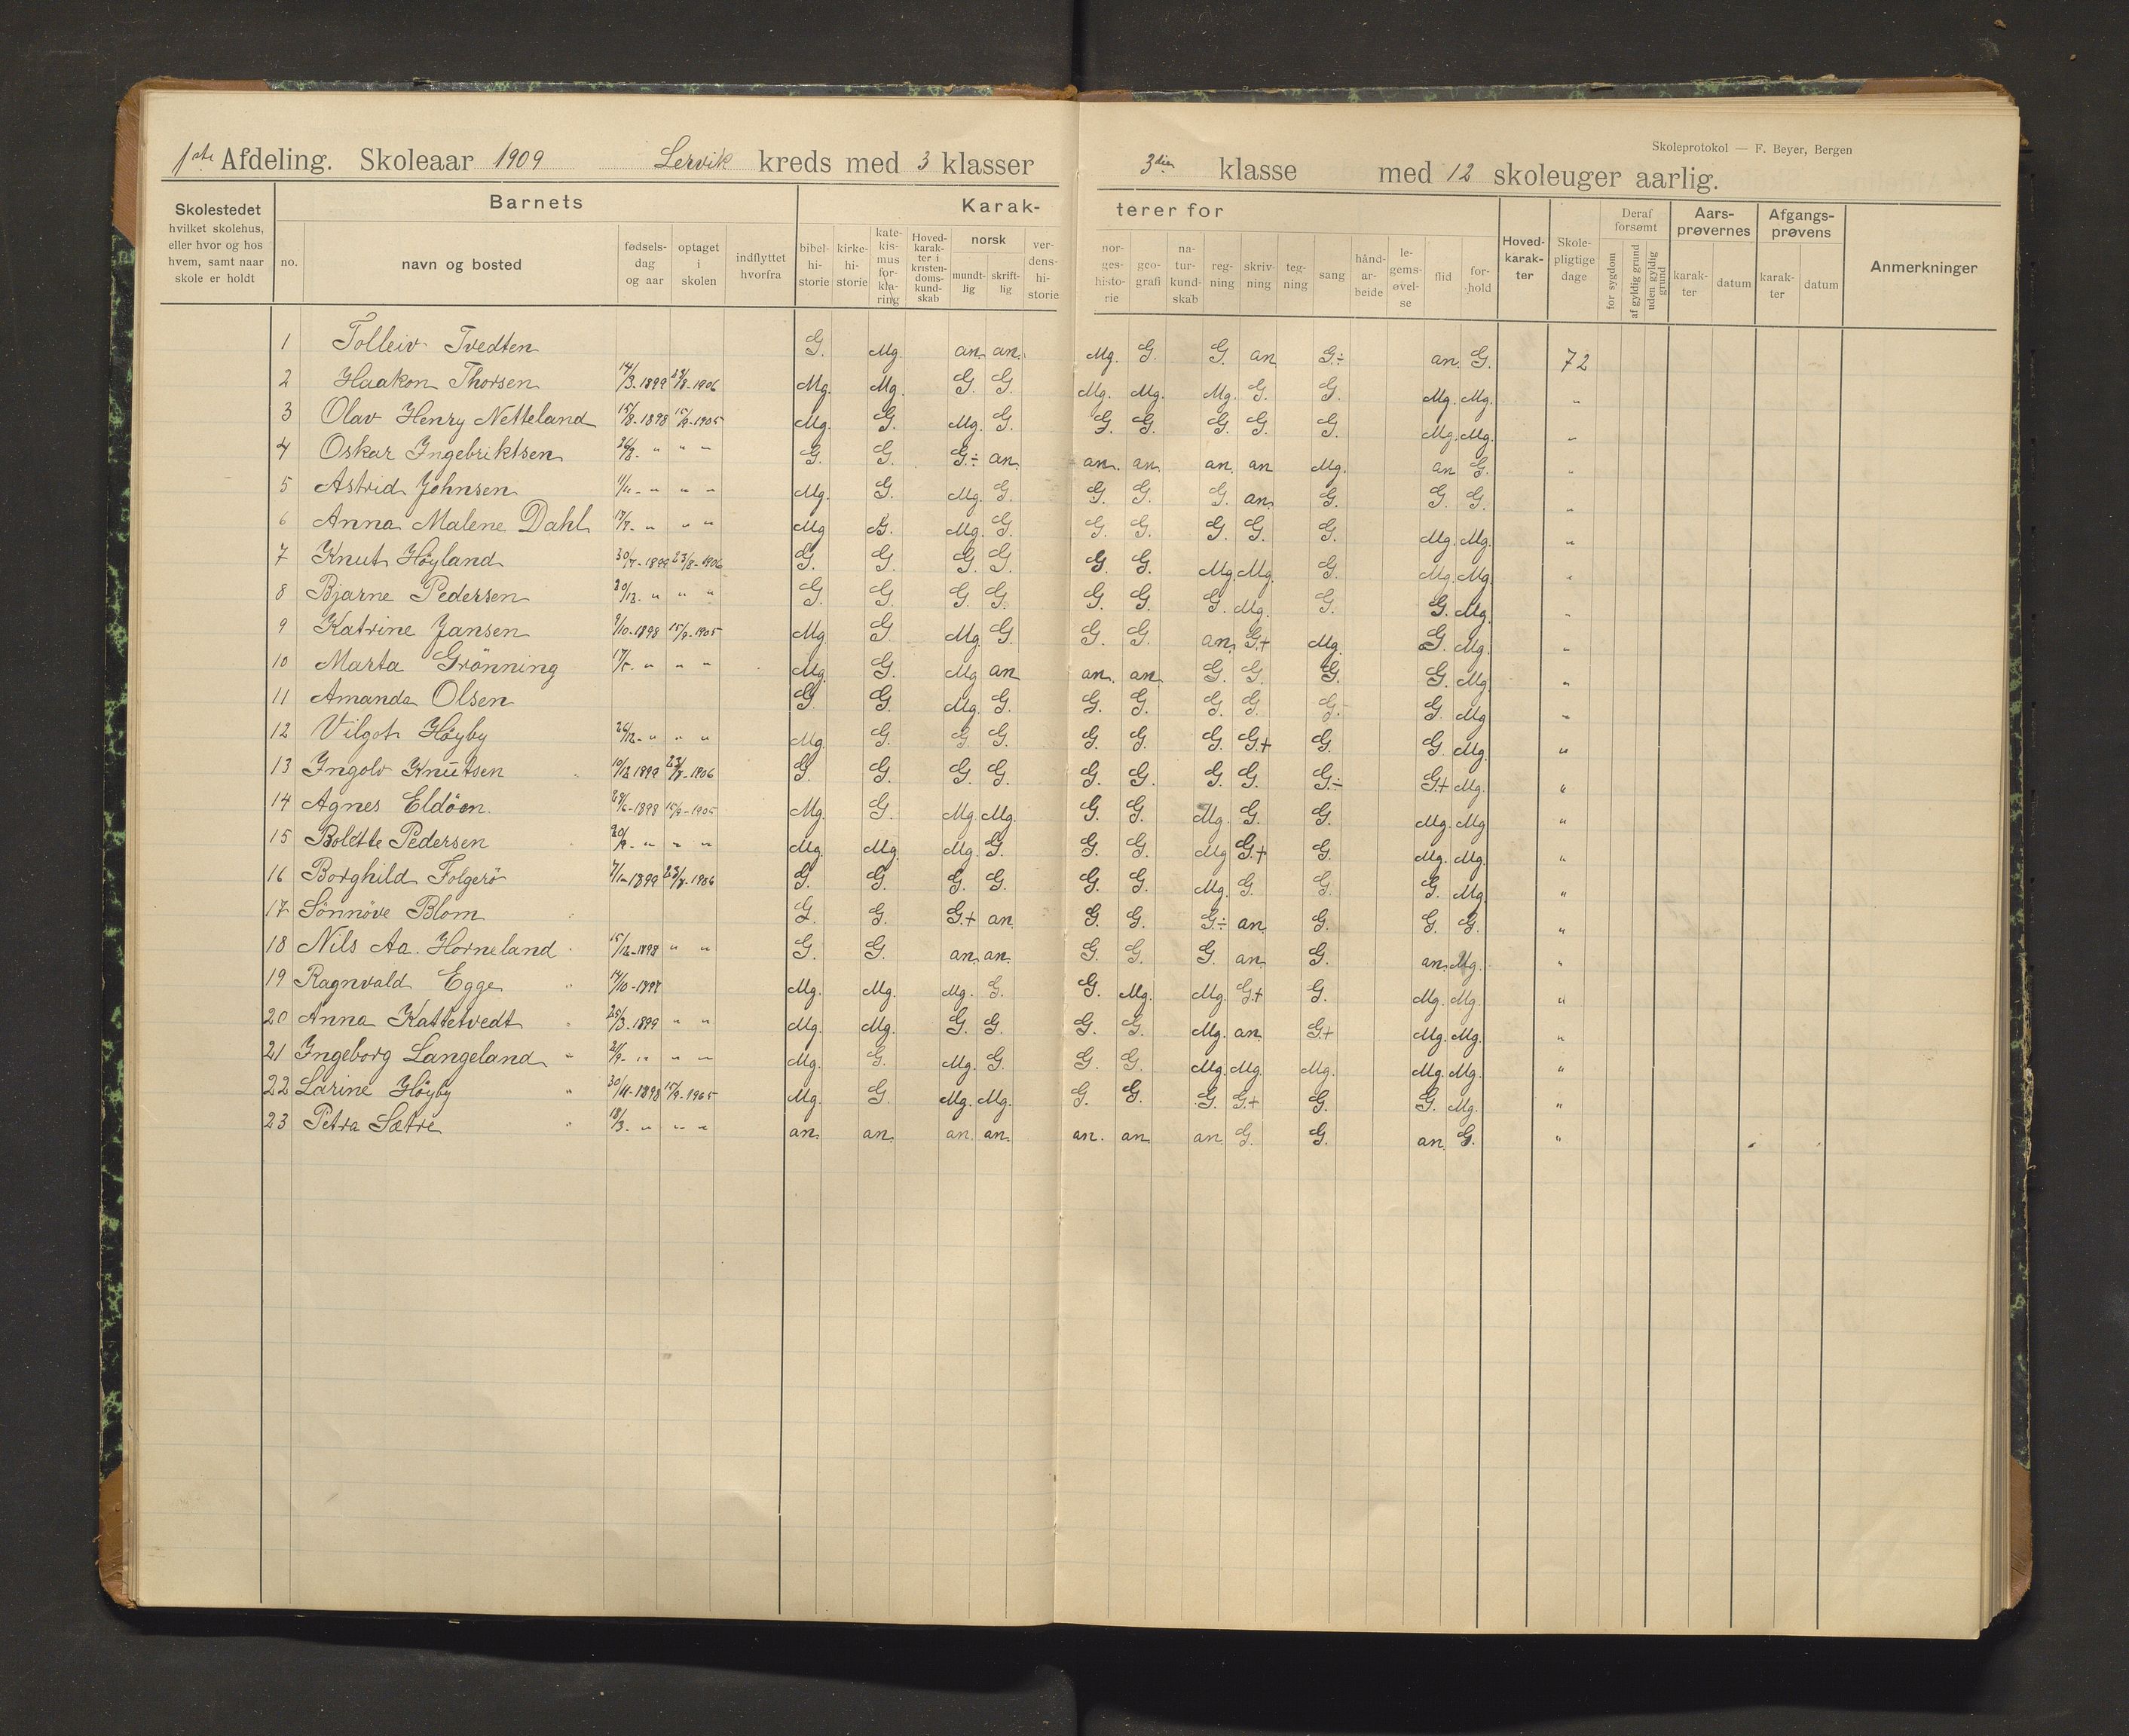 1ste Afdeling. Skoleaar 1909 Lervik kreds med 3 klasser 3die klasse med 12 skoleuger aarlig.
Skoleprotokol — F. Beyer, Bergen
Skolestedet hvilket skolehus, eller hvor og hos hvem, samt naar skole er holdt
Barnets
no. navn og bosted fødsels-dag og aar optaget i skolen indflyttet hvorfra
Karak- terer for
bibel-hi-storie kirke-hi-storie kate-kis-mus for-kla-ring Hoved-karak-ter i kristen-doms-kund-skab norsk mundt-lig skrift-lig ver-dens-hi-storie
nor-ges-histo-rie geo-grafi na-tur-kund-skab reg-ning skriv-ning teg-ning sang hånd-ar-beide le-gems-øvel-se flid for-hold
Hoved-karak-ter Skole-pligtige dage Deraf forsømt for sygdom af gyldig grund uden gyldig grund Aars-prøvernes karak-ter datum Afgangs-prøvens karak-ter datum Anmerkninger
1 Tolleiv Tvedten G. Mg. an. an. Mg. G. G. an G÷ an. G. 72
2 Haakon Thorsen 14/3.1899 23/8-1906 Mg. Mg. G. G. Mg. Mg. Mg. G. G. Mg. Mg. "
3 Olav Henry Netteland 15/8-1898 15/9-1905 Mg. G. Mg. G. G. G. G. G. G. Mg. Mg. "
4 Oskar Ingebriktsen " " " G. G. G÷ an. an. an. an. an Mg. an G. "
5 Astrid Johnsen 11/11- " " " Mg. G. Mg. G. G. G. G. an. G. G. G. "
6 Anna Malene Dahl " " " Mg G. Mg. G. G. G. G. G. G. Mg. Mg. "
7 Knut Høyland 1899 23/8-1906 G. G. G. G. G. G. Mg. Mg. G. Mg. Mg. "
8 Bjarne Pedersen 20/12. " " " G. G. G. G. G. G. G. Mg. G. G. Mg. "
9 Katrine Jansen 9/10-1898 15/9-1905 Mg G. Mg. G. G. G. an. G+ Mg. G. Mg. "
10 Marta Grönning " " " Mg. G. Mg an an. an. G. G. G. G. Mg. "
11 Amanda Olsen G. G. Mg. G. G. G. G. G. G. G. Mg "
12 Vilgot Høyby 26/12- " " " Mg. G. G. G. G. G. G. G+ G. G. Mg. "
13 Ingolv Knutsen 10/12 1899 23/8-1906 G. G. G. G. G. G. G. G. G÷ G+ Mg. "
14 Agnes Eldöen. 1898 15/9-1905 Mg. G. Mg. Mg. G. G. Mg. G. G. Mg. Mg "
15 Bolette Pedersen " " " Mg. Mg. Mg. G. G. G. Mg G+ G. Mg. Mg. "
16 Borghild Folgerö 1899 23/8-1906 G. G. G. G. G. G. Mg. G. G. G. Mg. "
17 Sönnöve Blom G. G. G+ an. G. G. G÷ an. G. G. G. "
18 Nils Aa. Horneland 15/12-1898 " " G. G. an. an. G. G. G. an. G. an. Mg. "
19 Ragnvald Egge Mg. Mg. Mg. G. G. Mg. Mg. G+ G. Mg. Mg. "
20 Anna Kattetvedt 25/3.1899 " " Mg. Mg. G. G. G. G. Mg. an. G+ Mg. Mg. "
21 Ingeborg Langeland " " " Mg. G. Mg. G. G. G. Mg. Mg. Mg. Mg. Mg. "
22 Larine Høyby 30/11-1898 15/9-1905 Mg. G. Mg. Mg. G. G. G. G+ G. G. Mg. "
23 Petra Sætre 18/3. " " " an. an. an. an. an. an. an. G. G. an. G. "